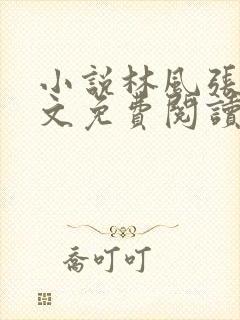 小說林风張
文免費閱讀
喬叮叮